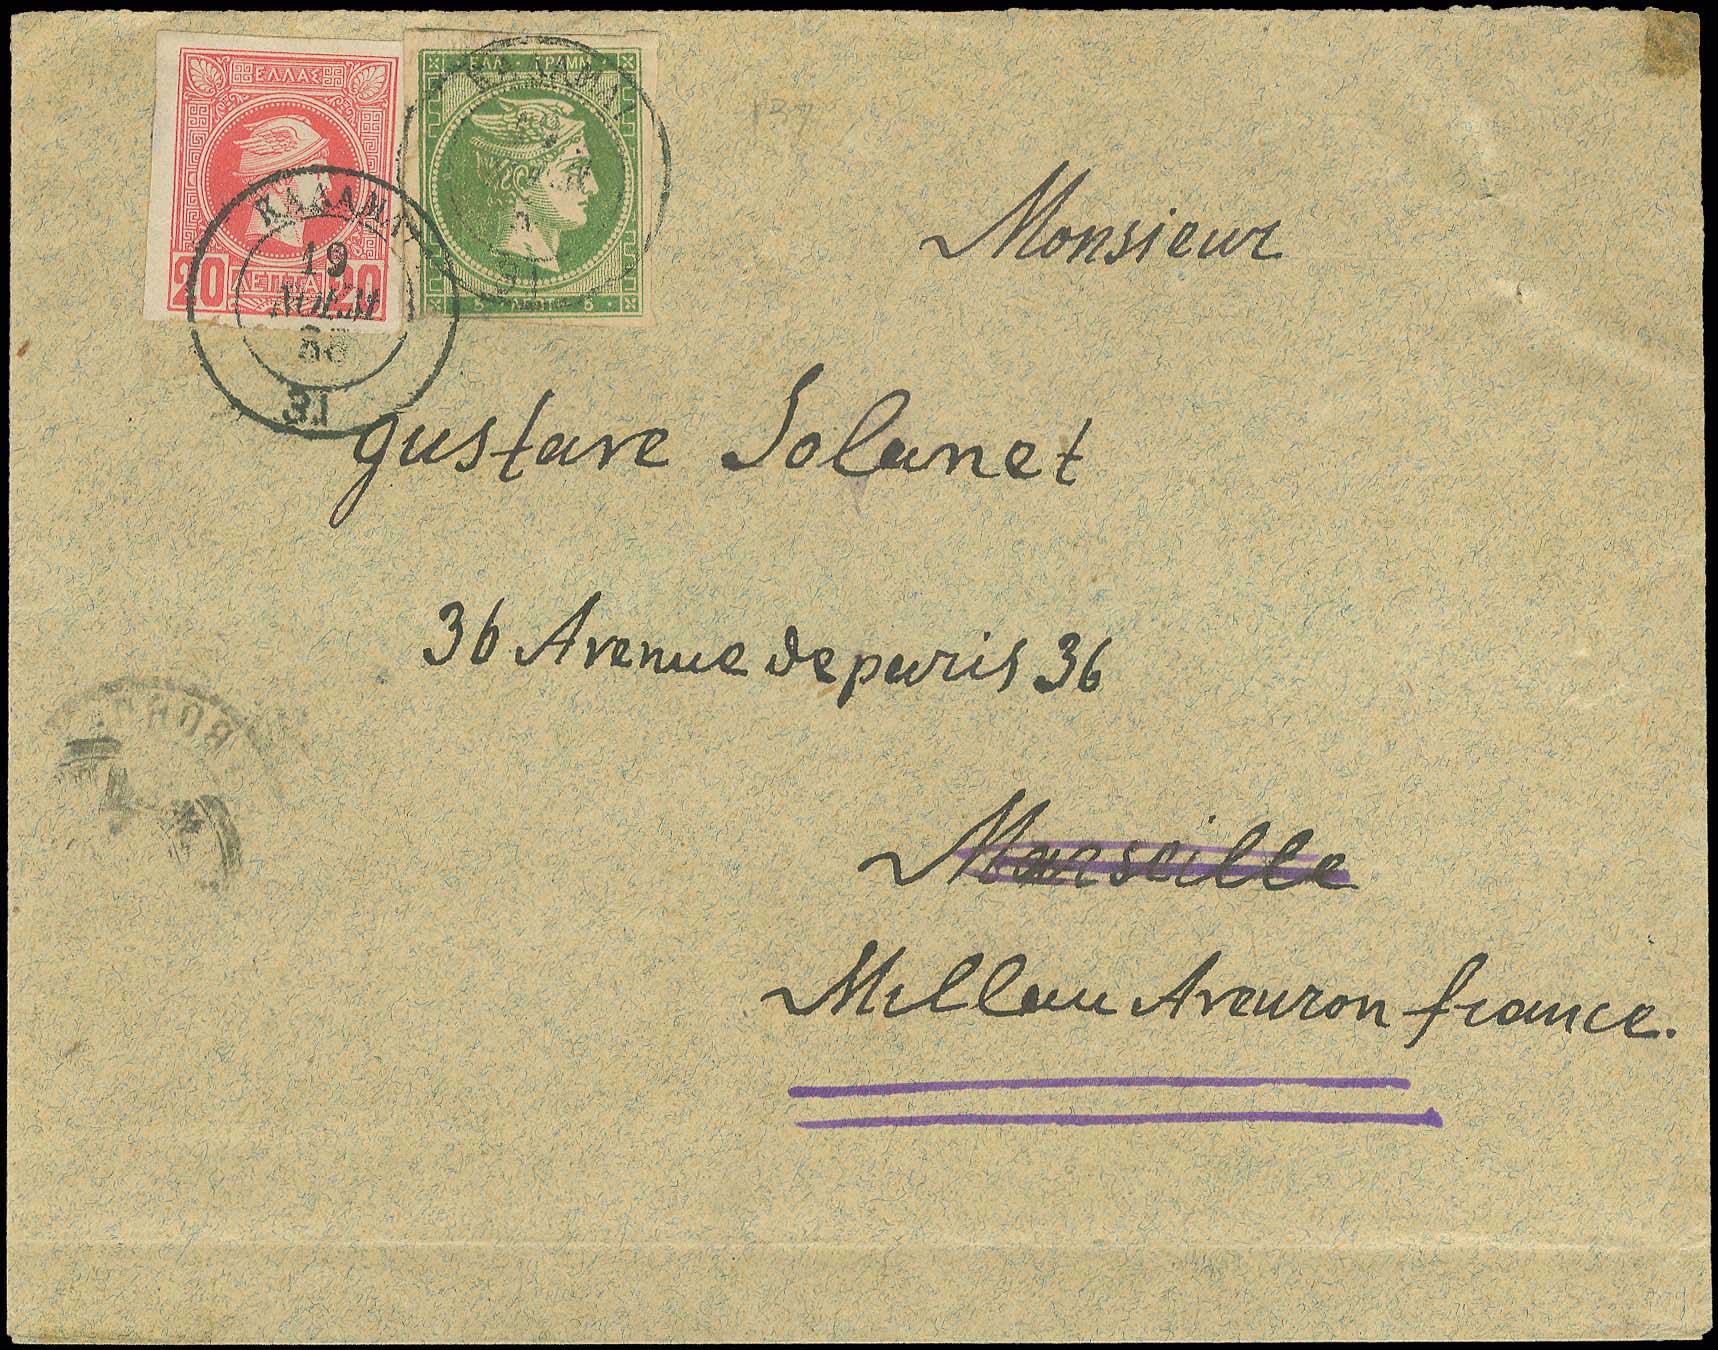 ΕΛΛΑΣ
20 ΛΕΠΤΑ 20
ΕΛΛ. ΓΡΑΜΜ.
5 5
ΚΑΛΑΜΑΙ
19
ΝΟΕΜ
88
31
31
137
Monsieur
gustave Solanet
36 Avenue de paris 36
Marseille
Millau Aveuron france.